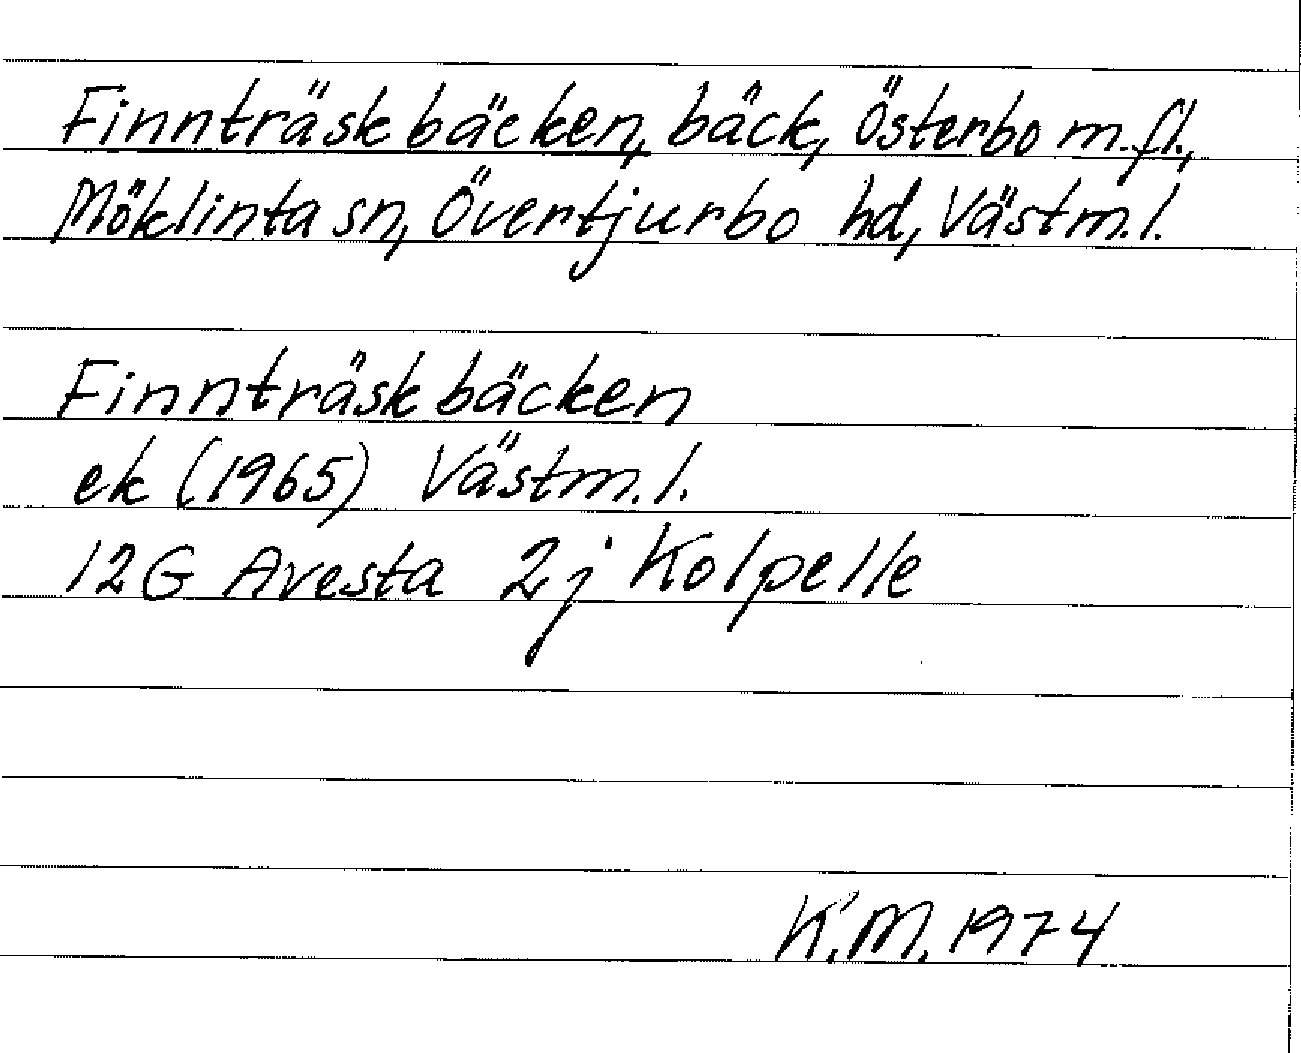 Finnträskbäcken, bäck, Österbo m.fl.,
Möklinta sn, Övertjurbo hd, Västm.l.
Finnträskbäcken
ek (1965) Västm.l.
12G Avesta 2j Kolpelle
K.M. 1974